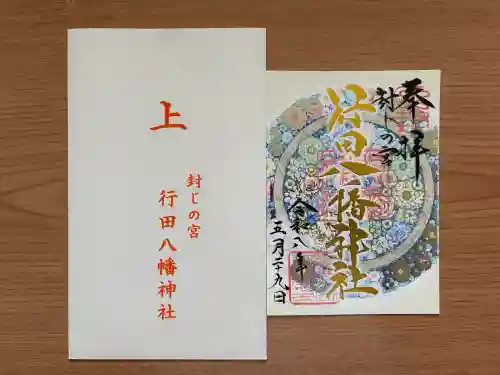 上
封じの宮
行田八幡神社
奉拝
封じの宮
行田八幡神社
令和八年
五月二十九日